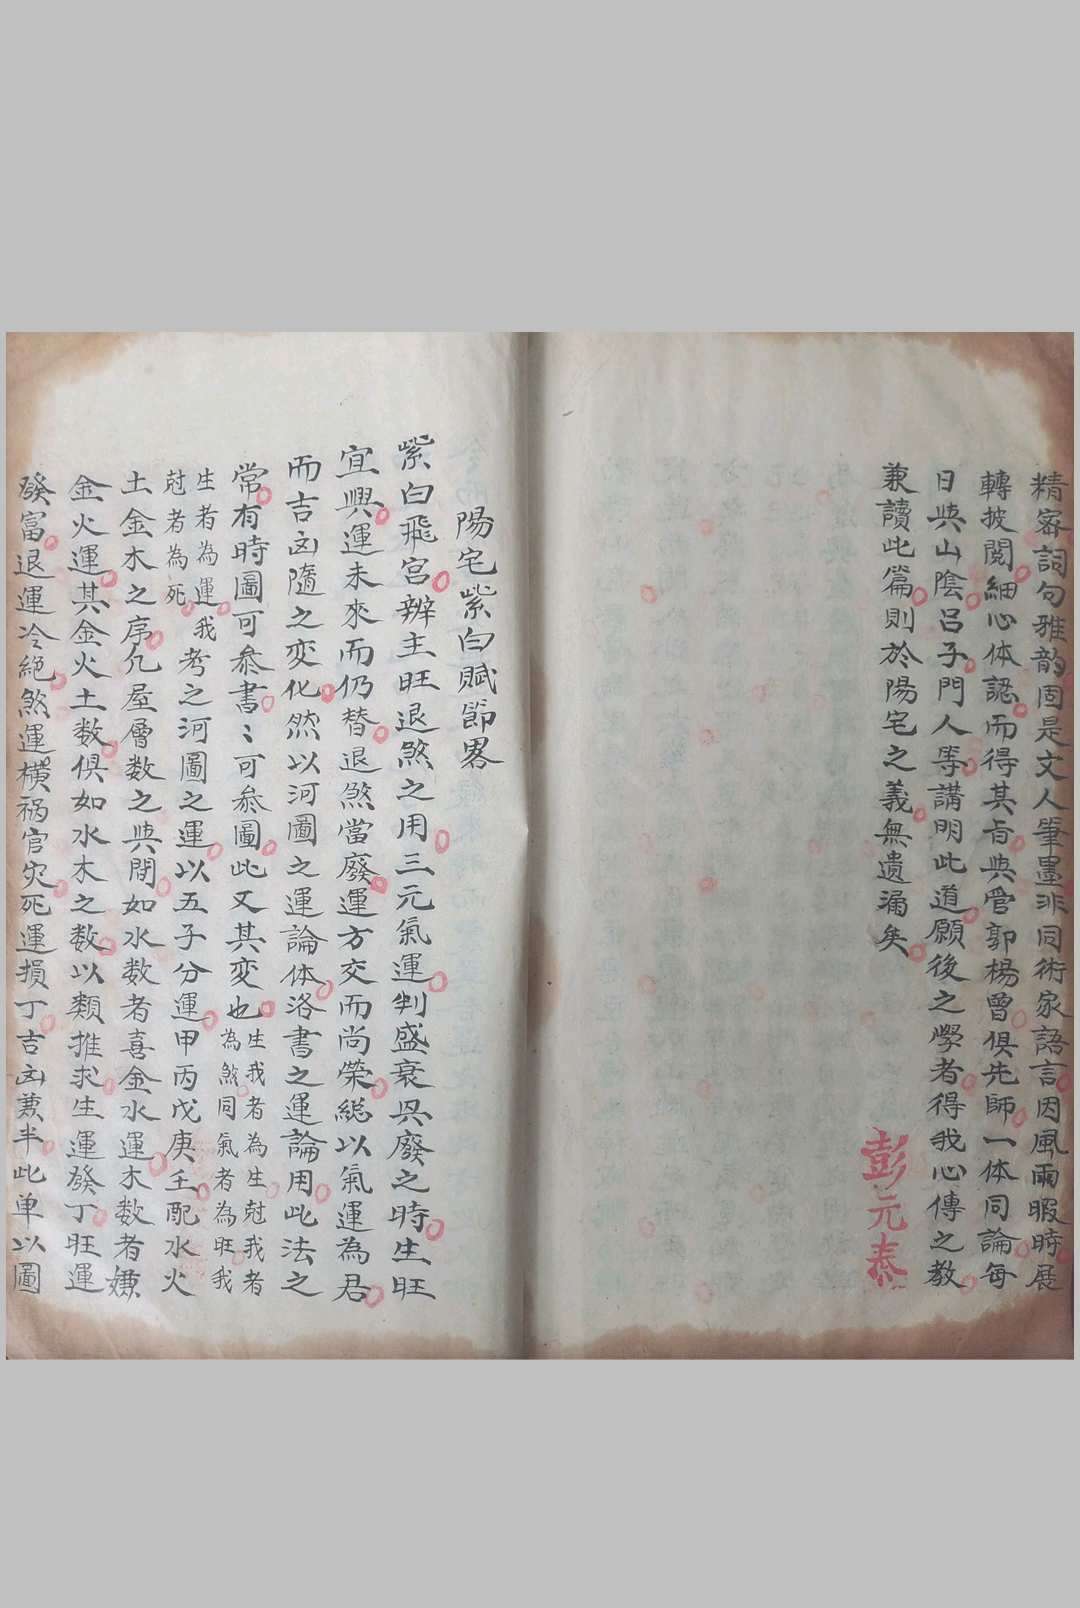 精密詞句雅韵固是文人筆墨非同術家語言因風雨暇時展
轉披閱細心体認而得其旨與管郭楊曾俱先師一体同論每
日與山陰呂子門人等講明此道願後之學者得我心傳之教
兼讀此篇則於陽宅之義無遺漏矣
彭元泰
陽宅紫白賦節畧
紫白飛宮辨主旺退煞之用三元氣運判盛衰具廢之時生旺
宜興運未來而仍替退煞當廢運方交而尚榮総以氣運為君
而吉凶隨之变化然以河圖之運論体洛書之運論用此法之
常有時圖可叅書〻可叅圖此又其変也生我者為生尅我者
為煞同氣者為旺我
生者為運我
尅者為死
考之河圖之運以五子分運甲丙戊庚壬配水火
土金木之序凢屋層数之與間如水数者喜金水運木数者嫌
金火運其金火土数俱如水木之数以類推求生運發丁旺運
發富退運冷絕煞運橫祸官灾死運損丁吉凶兼半此单以圖